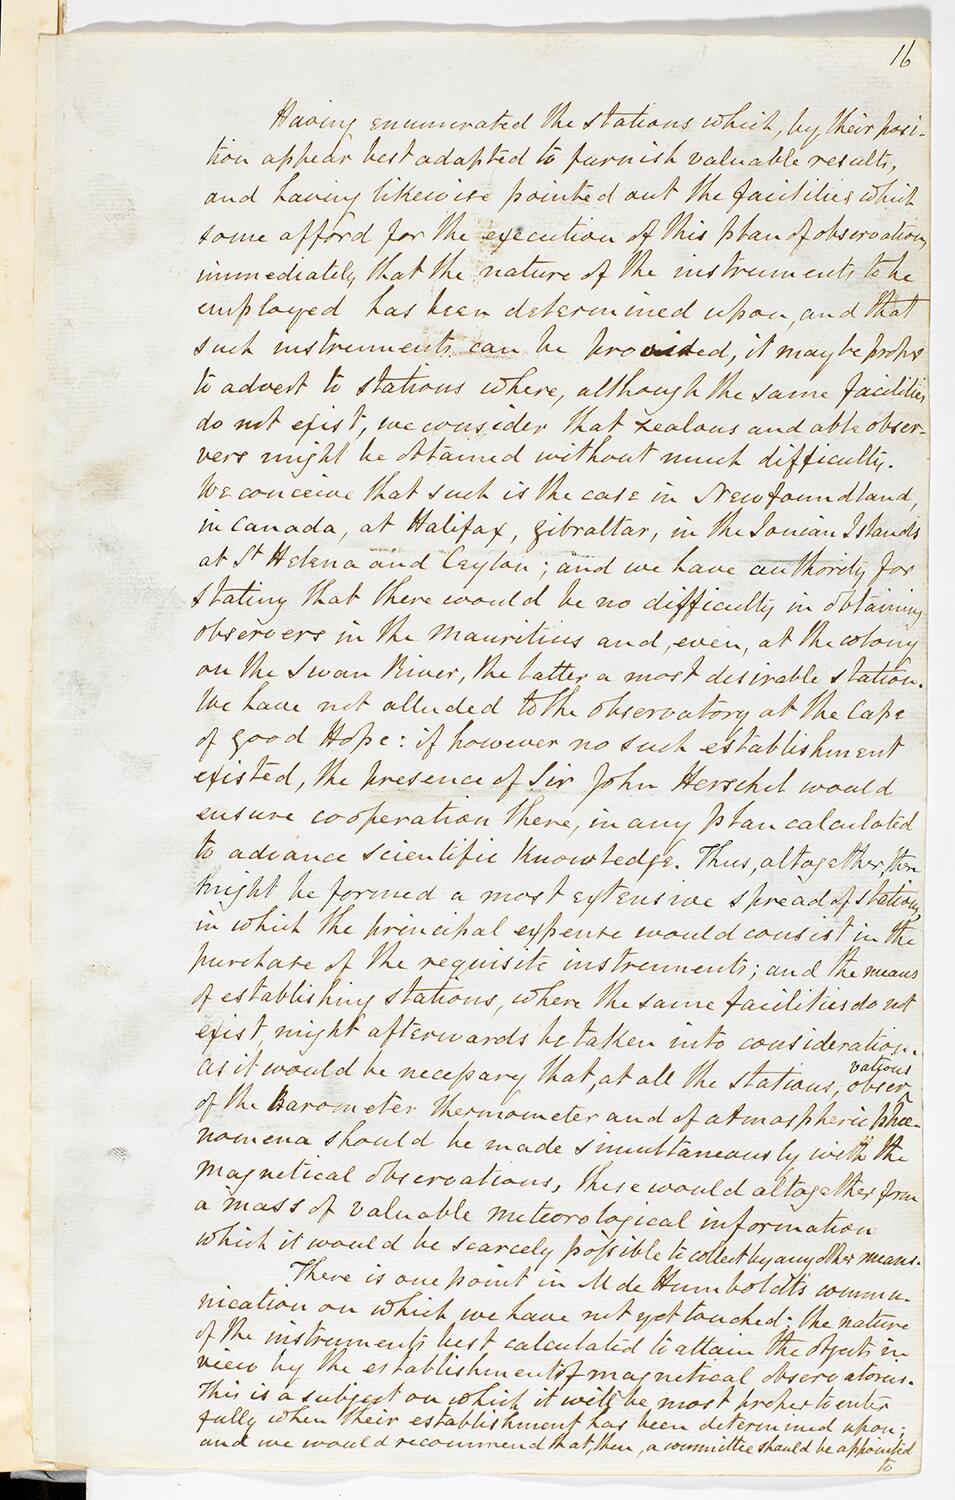 16
Having enumerated the stations which, by their posi-
tion appear best adapted to furnish valuable results,
and having likewise pointed out the facilities which
some afford for the execution of this plan of observation,
immediately that the nature of the instruments to be
employed has been determined upon, and that
such instruments can be provided, it may be proper
to advert to stations where, although the same facilities
do not exist, we consider that zealous and able obser-
vers might be obtained without much difficulty.
We conceive that such is the case in Newfoundland,
in Canada, at Halifax, Gibraltar, in the Ionian Islands
at St Helena and Ceylon; and we have authority for
stating that there would be no difficulty in obtaining
observers in the Mauritius and, even, at the colony
on the Swan River, the latter a most desirable station.
We have not alluded to the observatory at the Cape
of good Hope: if however no such establishment
existed, the presence of Sir John Herschel would
ensure cooperation there, in any plan calculated
to advance scientific knowledge. Thus, altogether, there
might be formed a most extensive spread of stations,
in which the principal expense would consist in the
purchase of the requisite instruments; and the means
of establishing stations, where the same facilities do not
exist, might afterwards be taken into consideration.
As it would be necessary that, at all the stations, obser
vations
of the Barometer thermometer and of atmospheric phæ-
nomena should be made simultaneously with the
magnetical observations, these would altogether form
a mass of valuable meteorological information
which it would be scarcely possible to collect by any other means.
There is one point in M de Humboldt's commu-
nication on which we have not yet touched: the nature
of the instruments best calculated to attain the objects in
view by the establishment of magnetical observatories.
This is a subject on which it will be most proper to enter
fully when their establishment has been determined upon;
and we would recommend that, then, a committee should be appointed
to